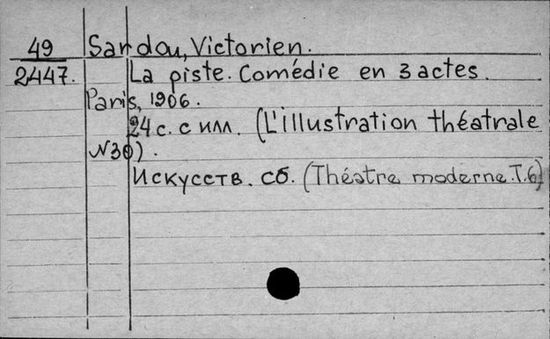 49 Sardou, Victorien.
2447. La piste. Comédie en 3 actes.
Paris, 1906.
24 с. с илл. (L'illustration théatrale
N30).
Искусств. сб. (Théatre moderne. T.6)